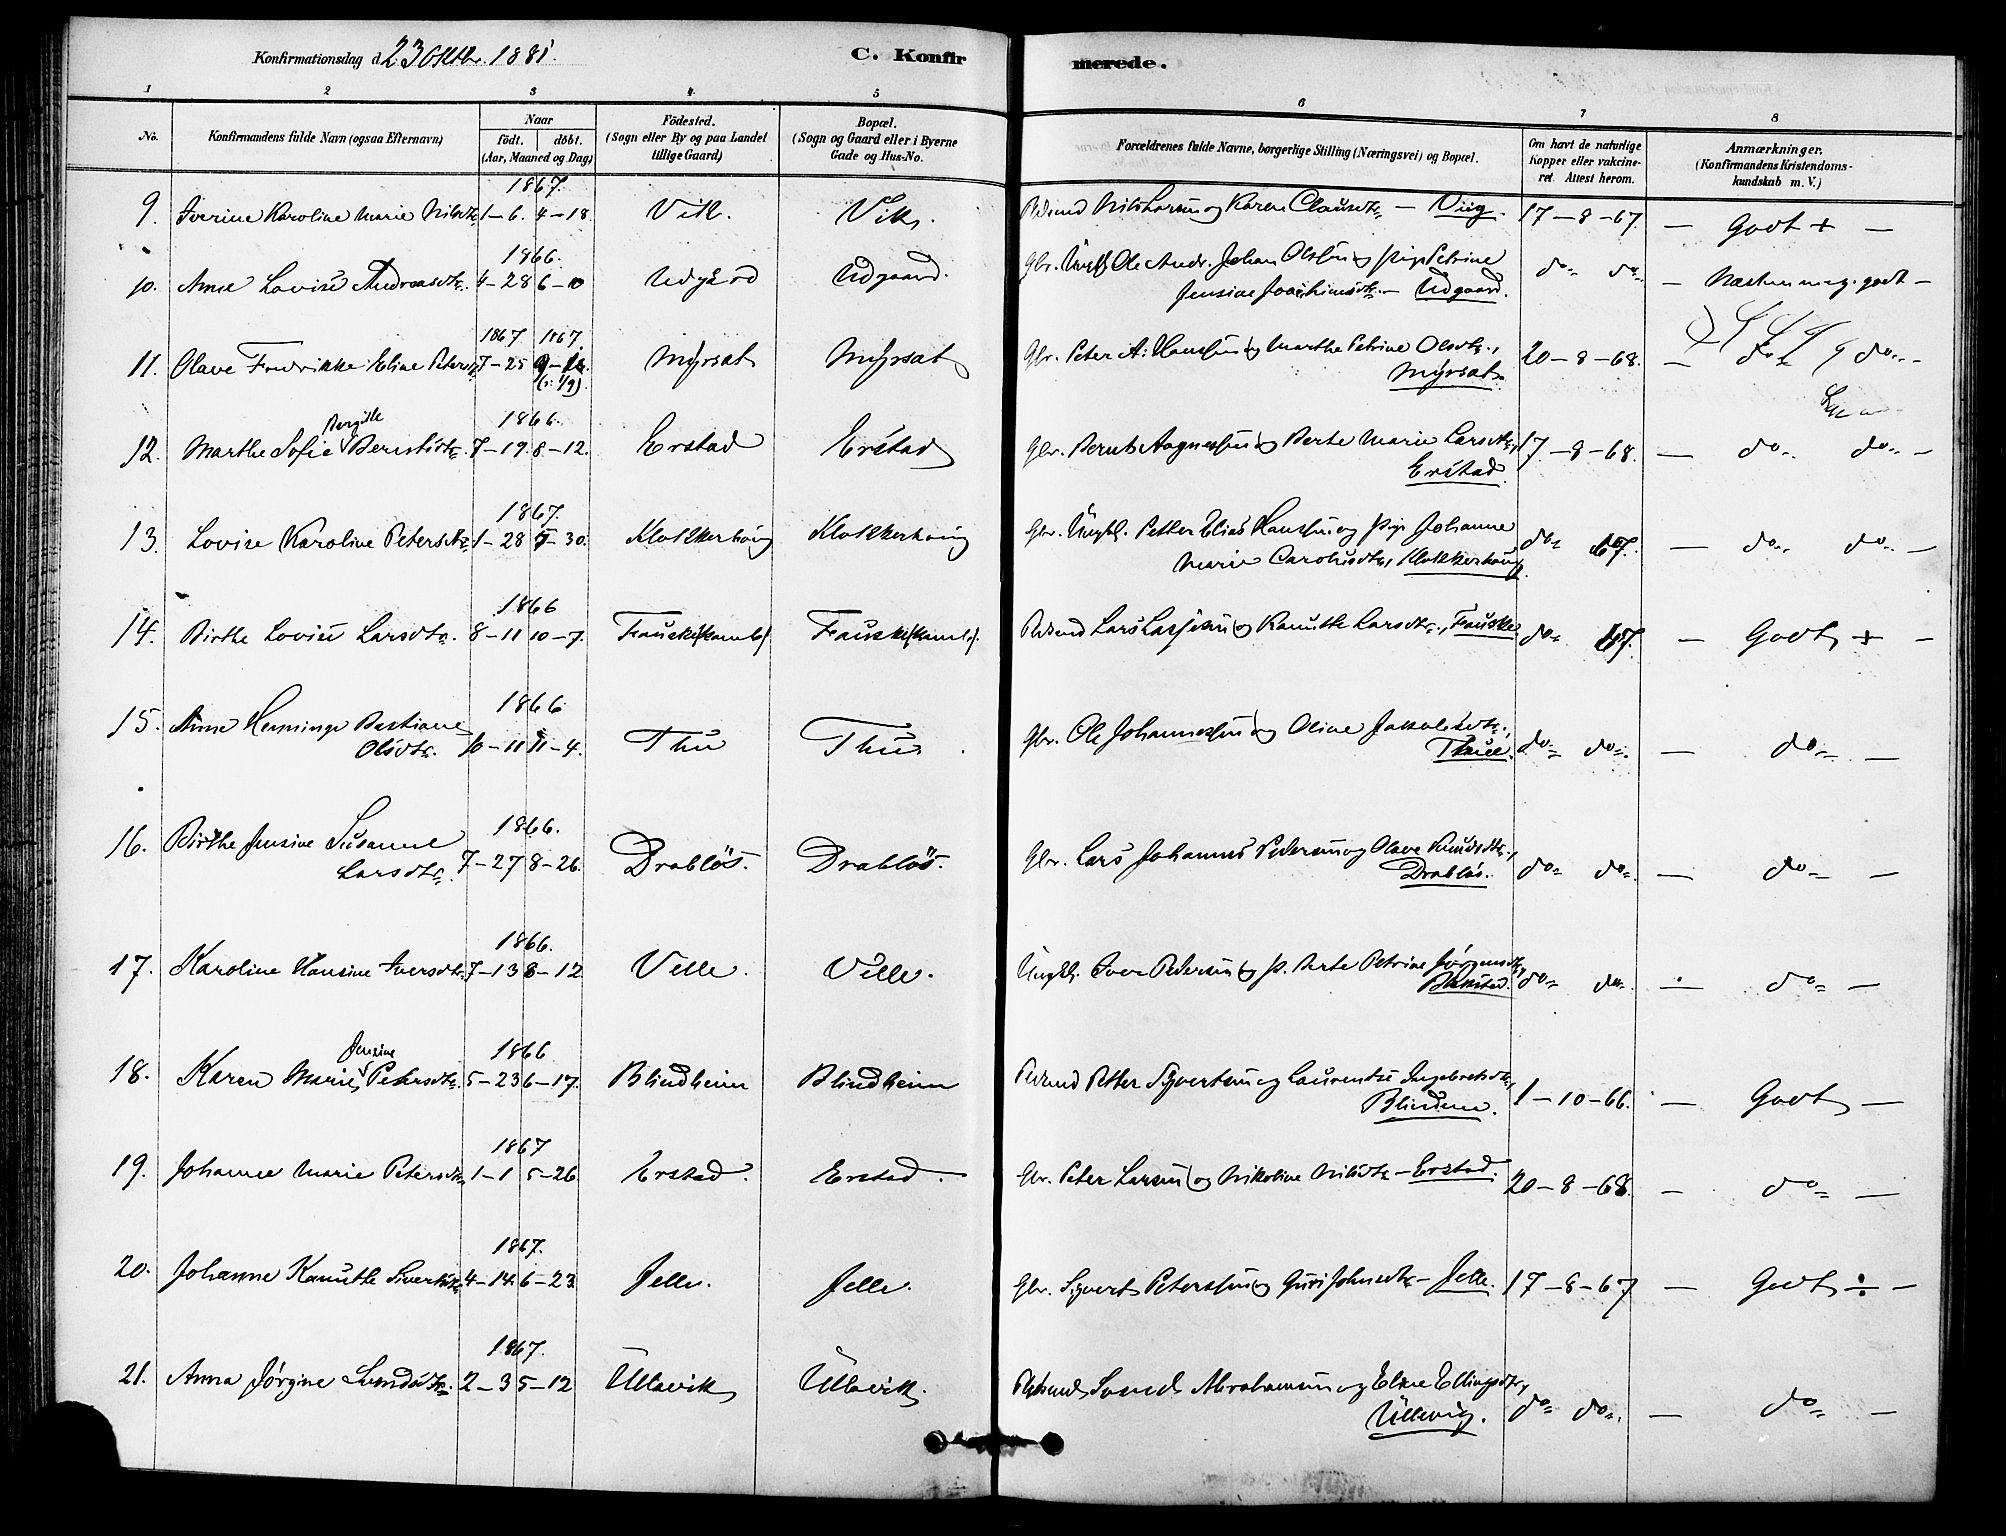 Konfirmationsdag d. 23 Oktbr. 1881.
C. Konfirmerede.
1 2 3 4 5 6 7 8
No. Konfirmandens fulde Navn (ogsaa Efternavn) Naar födt. döbt. (Aar, Maaned og Dag) Födested. (Sogn eller By og paa Landet tillige Gaard) Bopæl. (Sogn og Gaard eller i Byerne Gade og Hus-No. Forældrenes fulde Navne, borgerlige Stilling (Næringsvei) og Bopæl. Om havt de naturlige Kopper eller vakcineret. Attest herom. Anmærkninger. (Konfirmandens Kristendomskundskab m. V.)
1867.
9. Iverine Karoline Marie Nilsdtr. 1-6. 4-18. Vik. Vik. Nils Larsen og Karen Clausdtr. — Viig. 17-8-67. — Godt + —
1866.
10. Anne Lovise Andreasdtr. 4-28 6-10 Udgård Udgaard. Gbr. Ungk. Ole Andr. Johan Olsen og pige Petrine
Jensine Joachimsdtr. — Udgaard. do do — Næsten meg. godt —
1867 1867.
11. Olave Fredrikke Eline Petersdtr 7-25 Myrsæt Myrsæt Gbr. Peter A. Hansen og Marthe Petrine Olsdtr.,
Myrsæt. 20-8-68. — do do —
1866.
12. Marthe Sofie Bergitte Berntsdtr. 7-19. 8-12. Erstad Erstad Gbr. Bernt Aagnessen og Berte Marie Larsdtr.,
Erstad. 17-8-68. — do do —
1867.
13. Lovise Karoline Petersdtr. 1-28 5-30. Klokkerhoug Klokkerhoug Gbr. Ungk. Petter Elias Hansen og pige Johanne
Marie Carolusdtr., Klokkerhoug. do 67. — do do —
1866
14. Birthe Lovise Larsdtr. 8-11 10-7. Fauske Fauske Lars Lassesen og Kanutte Larsdtr., Fauske. do 67. — Godt + —
1866
15. Anne Henninge Bastiane
Olsdtr. 10-11 11-4. Thu Thue Gbr. Ole Johannessen og Oline Jakobsdtr.,
Thue. do do — do —
1866.
16. Birthe Jensine Susanne
Larsdtr. 7-27 8-26. Drabløs. Drabløs. Gbr. Lars Johannes Pedersen og Olave Knudsdtr.,
Drabløs. do do — do —
1866.
17. Karoline Hansine Iversdtr. 7-13 8-12 Velle. Velle. Ungk. Iver Pedersen og p. Berte Petrine Jørgensdtr.,
do do — do —
1866
18. Karen Marie Jensine Petersdtr. 5-23 6-17. Blindheim Blindheim Petter Syvertsen og Laurentse Ingebretsdtr.,
Blindem. 1-10-66. — Godt —
1867
19. Johanne Marie Petersdtr. 1-1 5-26. Erstad. Erstad. Gbr. Peter Larsen og Nikoline Nilsdtr. — Erstad. 20-8-68. — do —
1867.
20. Johanne Kanutte Sivertsdtr. 4-14. 6-23. Jelle. Jelle. Gbr. Syvert Peterssen og Guri Johnsdtr. — Jelle. 17-8-67. — Godt ÷ —
1867.
21. Anna Jørgine Svendsdtr. 2-3 5-12 Ullavik Ullavik. Svend Abrahamsen og Eline Ellingsdtr.,
Ullevig. do do — do —